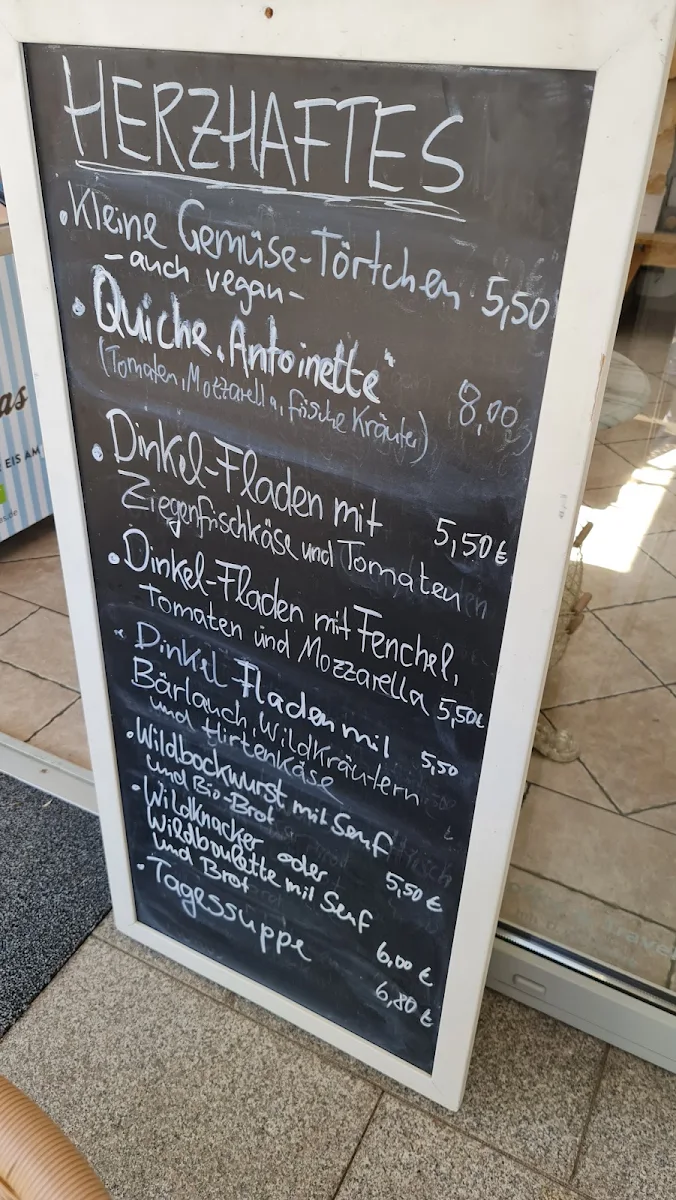 HERZHAFTES
• Kleine Gemüse-Törtchen 5,50
- auch vegan -
• Quiche „Antoinette"
(Tomaten, Mozzarella, frische Kräuter) 8,00
• Dinkel-Fladen mit
Ziegenfrischkäse und Tomaten 5,50 €
• Dinkel-Fladen mit Fenchel,
Tomaten und Mozzarella 5,50€
• Dinkel Fladen mit
Bärlauch, Wildkräutern
und Hirtenkäse 5,50
• Wildbockwurst mit Senf
und Bio-Brot 5,50 €
• Wildknacker oder
Wildboulette mit Senf
und Brot 6,00 €
• Tagessuppe 6,80 €
as
EIS AM